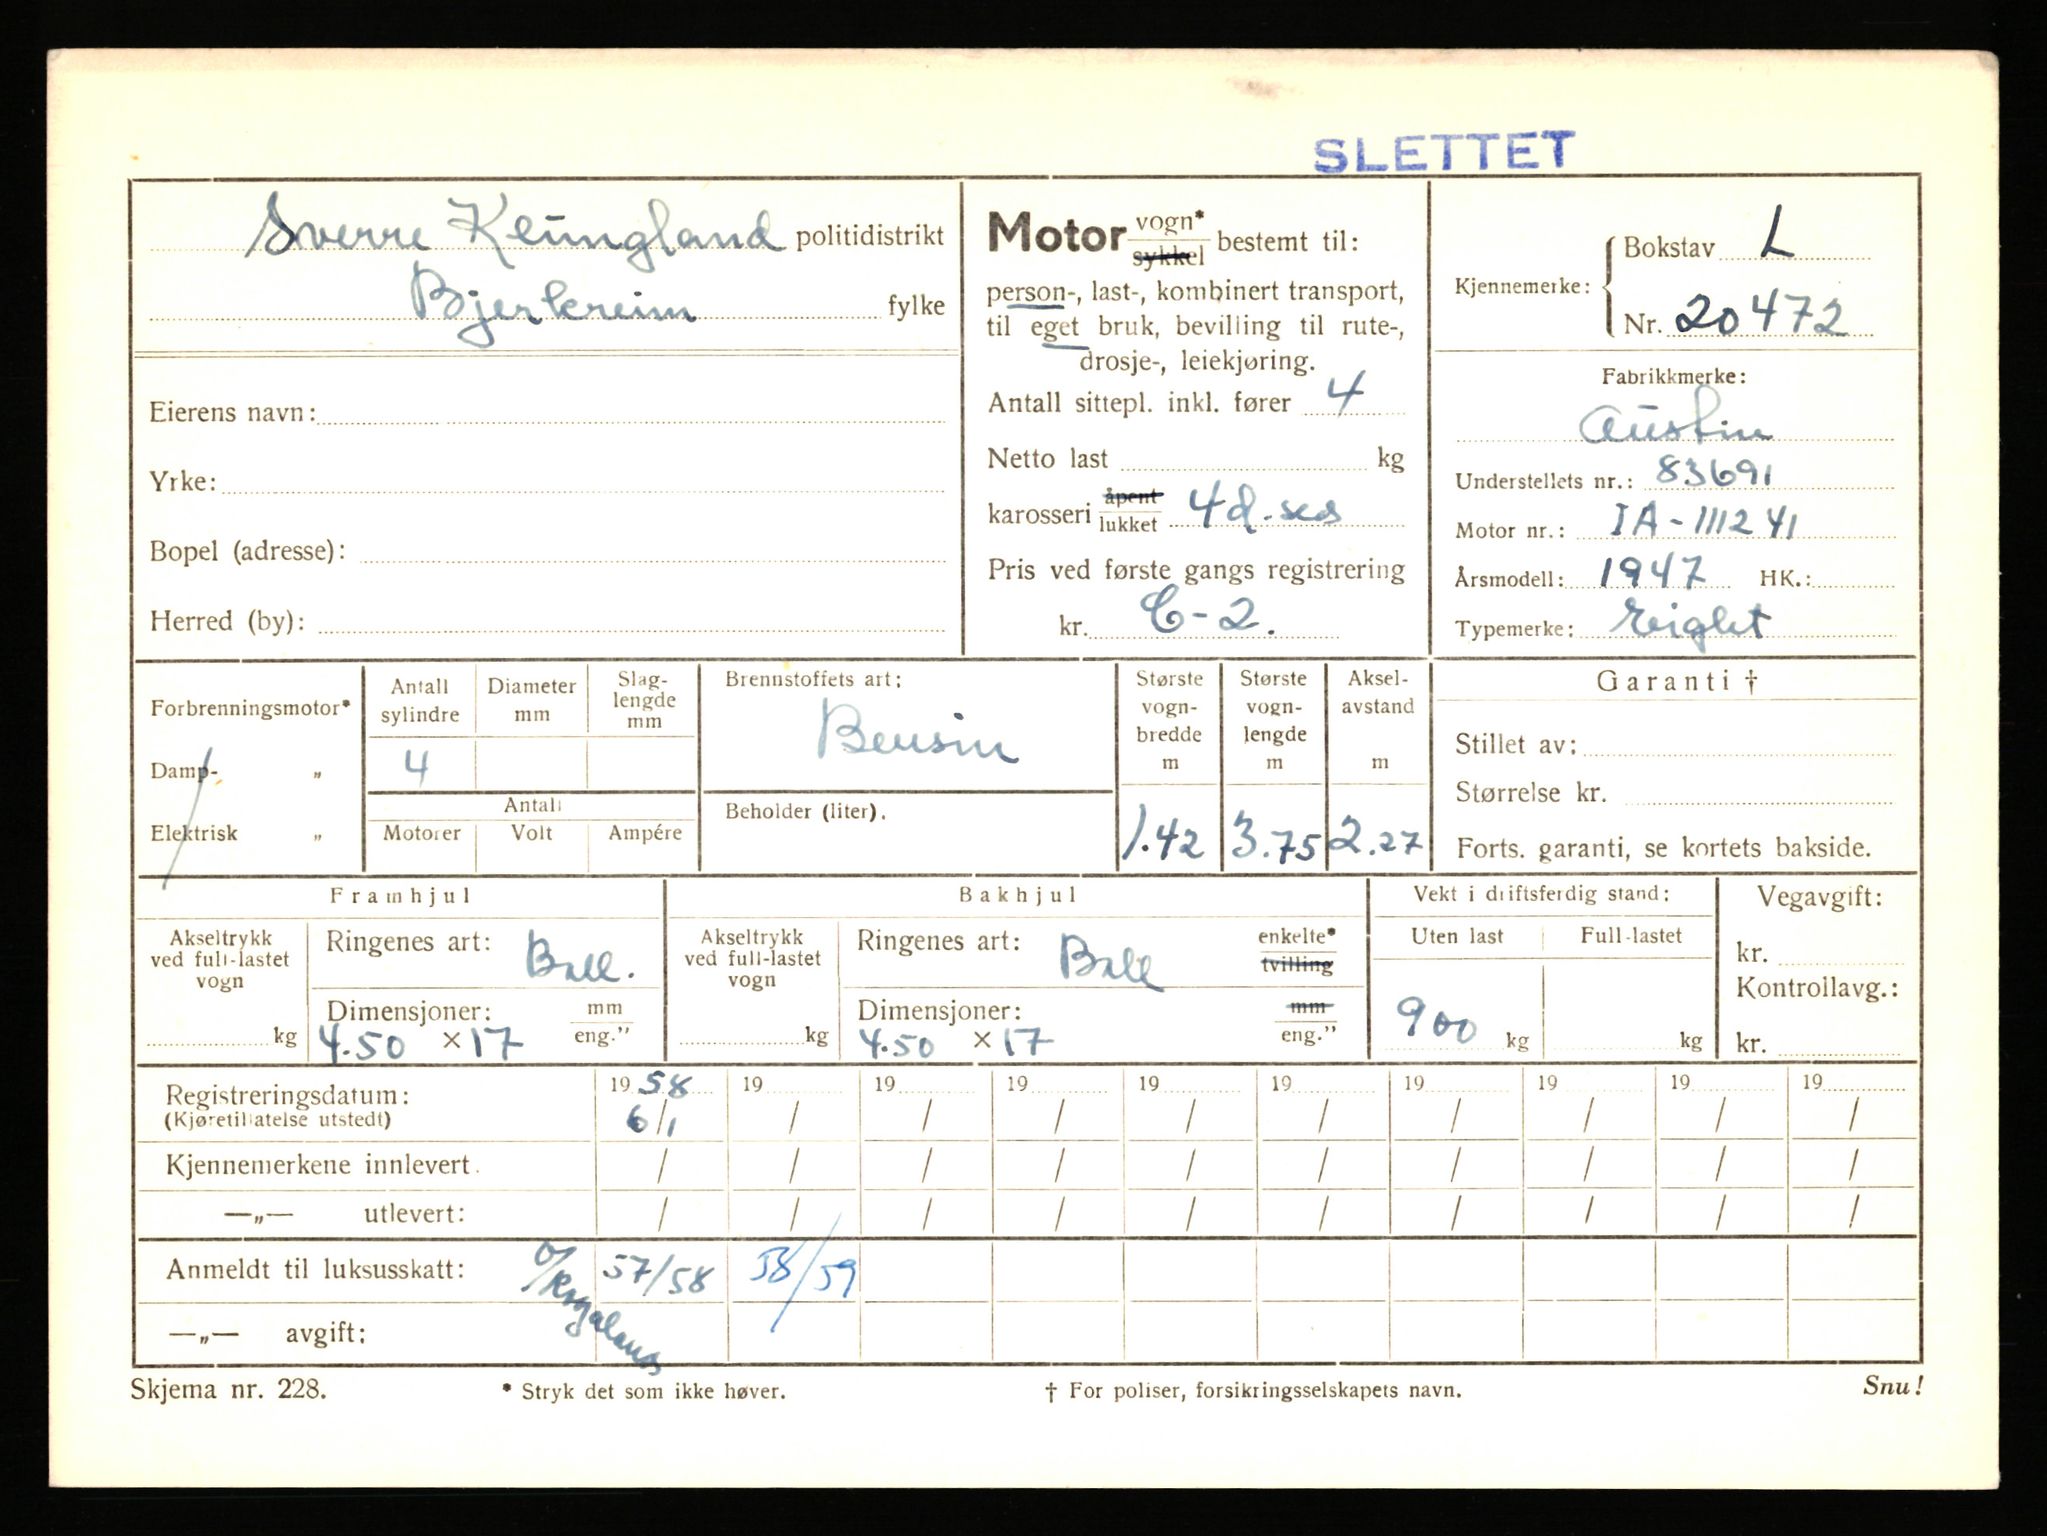 SLETTET
Sverre Keungland politidistrikt
Bjerkreim fylke
Eierens navn:
Yrke:
Bopel (adresse):
Herred (by):
Motor vogn* sykkel bestemt til:
person-, last-, kombinert transport,
til eget bruk, bevilling til rute-,
drosje-, leiekjøring.
Antall sittepl. inkl. fører 4
Netto last kg
karosseri åpent lukket 4d. sed
Pris ved første gangs registrering
kr. C-2.
Kjennemerke: Bokstav L
Nr. 20472
Fabrikkmerke:
Austin
Understellets nr.: 83691
Motor nr.: IA-111241
Årsmodell: 1947 HK.:
Typemerke: Eight
Forbrenningsmotor*
Damp- „
Elektrisk „
Antall sylindre
Diameter mm
Slag-lengde mm
4
Antall
Motorer Volt Ampére
Brennstoffets art:
Bensin
Beholder (liter).
Største vogn-bredde m
1.42
Største vogn-lengde m
3.75
Aksel-avstand m
2.27
Garanti †
Stillet av:
Størrelse kr.
Forts. garanti, se kortets bakside.
Framhjul
Akseltrykk
ved full-lastet
vogn
kg
Ringenes art: Ball.
Dimensjoner: mm eng.”
4.50 × 17
Bakhjul
Akseltrykk
ved full-lastet
vogn
kg
Ringenes art: Ball enkelte* tvilling
Dimensjoner: mm eng.”
4.50 × 17
Vekt i driftsferdig stand:
Uten last Full-lastet
900 kg kg
Vegavgift:
kr.
Kontrollavg.:
kr.
Registreringsdatum: 1958 19 19 19 19 19 19 19 19 19
(Kjøretillatelse utstedt) 6/1 / / / / / / / / /
Kjennemerkene innlevert. / / / / / / / / / /
—„— utlevert: / / / / / / / / / /
Anmeldt til luksusskatt: o/Rogaland 57/58 58/59
—„— avgift:
Skjema nr. 228. * Stryk det som ikke høver. † For poliser, forsikringsselskapets navn. Snu!